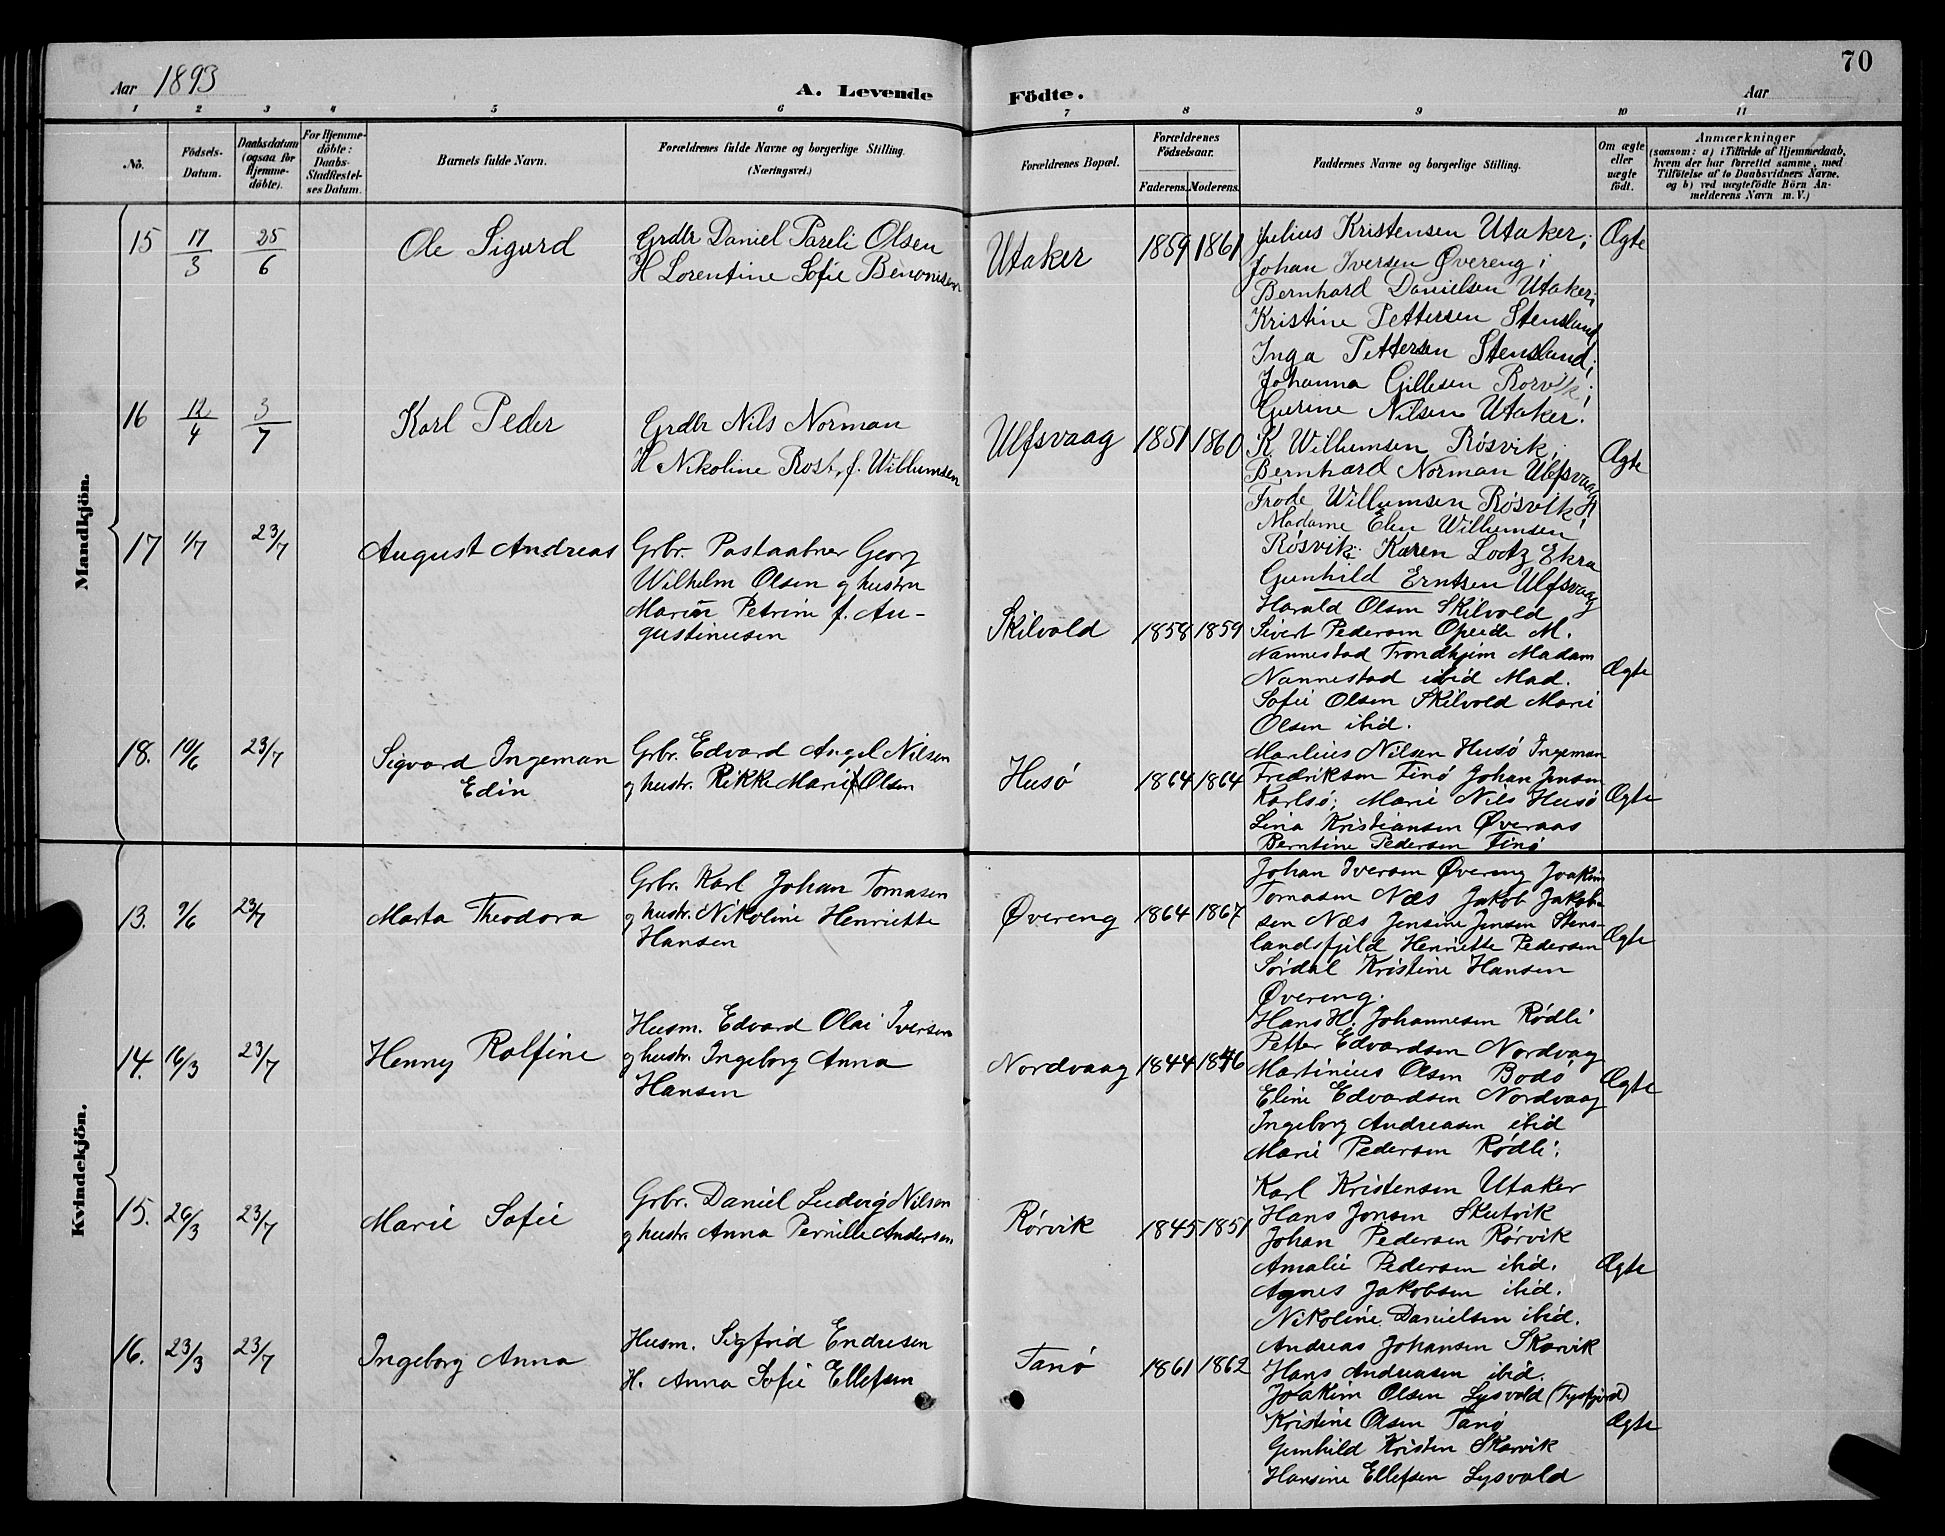 70
Aar 1893
A. Levende Födte.
Aar
1 2 3 4 5 6 7 8 9 10 11
No.
Födsels-
Datum.
Daabsdatum
(ogsaa for
Hjemme-
döbte).
For Hjemme-
döbte:
Daabs-
Stadfæstel-
ses Datum.
Barnets fulde Navn.
Forældrenes fulde Navne og borgerlige Stilling.
(Næringsvei.)
Forældrenes Bopæl.
Forældrenes
Födselsaar.
Faderens. Moderens.
Faddernes Navne og borgerlige Stilling.
Om ægte
eller
uægte
födt.
Anmærkninger
(saasom: a) i Tilfælde af Hjemmedaab,
hvem der har forrettet samme, med
Tilföielse af to Daabsvidners Navne.
og b) ved uægtefödte Börn An-
melderens Navn m.V.)
Mandkjön.
15 17/3 25/6 Ole Sigurd
Grdbr Daniel Pareli Olsen
H Lorentine Sofie Benonisen
Utaker 1859 1861
Julius Kristensen Utaker;
Johan Iversen Øvereng;
Bernhard Danielsen Utaker;
Kristine Pettersen Stensland;
Inga Pettersen Stensland;
Johanna Gillesen Rorvik;
Gurine Nilsen Utaker.
Ægte
16 12/4 3/7 Karl Peder
Grdbr Nils Norman
H Nikoline Rost, f. Willumsen
Ulfsvaag 1851 1860
K. Willumsen Røsvik;
Bernhard Norman Ulfsvaag
Frode Willumsen Røsvik;
Madame Elen Willumsen
Røsvik; Karen Lootz Ekra
Gunhild Erntsen Ulfsvaag
Ægte
17 1/7 23/7 August Andreas
Grbr. Postaabner Georg
Wilhelm Olsen og hustru
Marie Petrine f. Au-
gustinusen
Skilvold 1858 1859
Harald Olsen Skilvold
Sivert Pedersen Opeide M.
Nannestad Trondhjem Madam
Nannestad ibid Mad.
Sofie Olsen Skilvold Marie
Olsen ibid.
Ægte
18. 10/6 23/7 Sigvard Ingeman
Edin
Grbr. Edvard Angel Nilsen
og hustr. Rikke Marie Olsen
Husø 1864 1864
Marlius Nilsen Husø Ingeman
Fredriksen Finø Johan Jensen
Karlsø; Marie Nils Husø
Lina Kristiansen Øveraas
Berntine Pedersen Finø
Ægte
Kvindekjön.
13. 9/6 23/7 Marta Theodora
Grbr. Karl Johan Tomasen
og hustr. Nikoline Henriette
Hansen
Øvereng 1864 1867
Johan Iversen Øvereng Joakim
Tomasen Næs Jakob Jakob-
sen Næs Jensine Jensen Stens-
landsfjeld Henriette Pedersen
Sørdal Kristine Hansen
Øvereng.
Ægte
14. 16/3 23/7 Henny Rolfine
Husm. Edvard Olai Iversen
og hustr. Ingeborg Anna
Hansen
Nordvaag 1844 1846
Hans H. Johannesen Rødli
Petter Edvardsen Nordvag
Martinius Olsen Bodø
Eline Edvardsen Nordvaag
Ingeborg Andreasen ibid
Marie Pedersen Rødli;
Ægte
15. 26/3 23/7 Marie Sofie
Grbr. Daniel Ludvig Nilsen
og hustr. Anna Pernille Andersen
Rørvik 1845 1851
Karl Kristensen Utaker
Hans Jonsen Skutvik
Johan Pedersen Rørvik
Amalie Pedersen ibid.
Agnes Jakobsen ibid.
Nikoline Danielsen ibid.
Ægte
16. 23/3 23/7 Ingeborg Anna
Husm. Sigfrid Endresen
H. Anna Sofie Ellefsen
Tanø 1861 1862
Andreas Johansen Skarvik
Hans Andreasen ibid.
Joakim Olsen Lysvold (Tysfjord)
Kristine Olsen Tanø
Gunhild Kristen Skarvik
Hansine Ellefsen Lysvold
Ægte